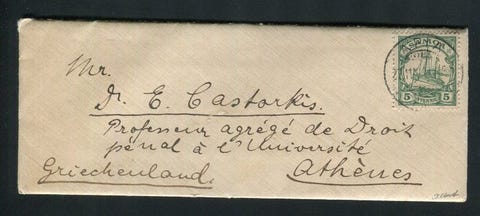 SAMOA
5 5
Mr.
Dr. E. Castorkis.
Professeur agrégé de Droit
pénal à l'Université
Griechenland. Athènes